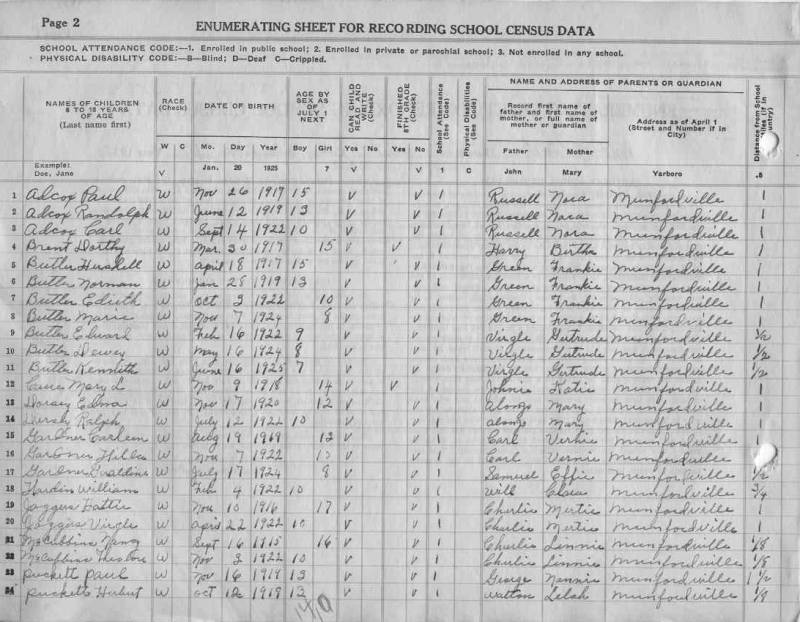 Page 2
ENUMERATING SHEET FOR RECORDING SCHOOL CENSUS DATA
SCHOOL ATTENDANCE CODE:—1. Enrolled in public school; 2. Enrolled in private or parochial school; 3. Not enrolled in any school.
PHYSICAL DISABILITY CODE:—B—Blind; D—Deaf C—Crippled.
NAMES OF CHILDREN 6 TO 18 YEARS OF AGE (Last name first)
RACE (Check)
DATE OF BIRTH
AGE BY SEX AS OF JULY 1 NEXT
CAN CHILD READ AND WRITE (Check)
FINISHED 8TH GRADE (Check)
School Attendance (See Code)
Physical Disabilities (See Code)
NAME AND ADDRESS OF PARENTS OR GUARDIAN
Record first name of father and first name of mother, or full name of mother or guardian
Address as of April 1 (Street and Number if in City)
Distance from School
W C Mo. Day Year Boy Girl Yes No Yes No Father Mother
Example: Doe, Jane V Jan. 20 1925 7 V V 1 C John Mary Yarboro .5
1 Adcox Paul W Nov 26 1917 15 V V 1 Russell Nora Munfordville 1
2 Adcox Randolph W June 12 1919 13 V V 1 Russell Nora Munfordville 1
3 Adcox Carl W Sept 14 1922 10 V V 1 Russell Nora Munfordville 1
4 Brent Dorthy W Mar. 30 1917 15 V V 1 Harry Birtha Munfordville 1
5 Butler Hershell W April 18 1917 15 V V 1 Green Frankie Munfordville 1
6 Butler Norman W Jan 28 1919 13 V V 1 Green Frankie Munfordville 1
7 Butler Edieth W Oct 3 1922 10 V V 1 Green Frankie Munfordville 1
8 Butler Marie W Nov 7 1924 8 V V 1 Green Frankie Munfordville 1
9 Butler Edward W Feb 16 1922 9 V V 1 Virgle Gertrude Munfordville
10 Butler Dewey W May 16 1924 8 V V 1 Virgle Gertrude Munfordville 1/2
11 Butler Kennith W June 16 1925 7 V V 1 Virgle Gertrude Munfordville 1/2
12 Mary L W Nov 9 1918 14 V V 1 Johnie Katie Munfordville 1
13 Dorsey Edna W Nov 17 1920 12 V V 1 Alonzo Mary Munfordville 1
14 Ralph W July 12 1922 10 V V 1 Alonzo Mary Munfordville 1
15 Gardner W Aug 19 1919 V V 1 Carl Munfordville 1
16 Gardner W Nov 7 1922 V V 1 Carl Vernie Munfordville
17 Gardner W July 17 1924 8 V V 1 Samuel Effie Munfordville 1/2
18 Hardin William W Feb 4 1922 10 V V 1 Will Munfordville 3/4
19 Jaggers Hattie W Nov 10 1916 17 V V 1 Charlie Mertie Munfordville 1
20 Jaggers Virgle W April 22 1922 10 V V 1 Charlie Mertie Munfordville 1
21 McCubbins Nancy W Sept 16 1915 16 V V 1 Charlie Linnie Munfordville 1/8
22 McCubbins W Nov 3 1922 10 V V 1 Charlie Linnie Munfordville 1/8
23 Puckett Paul W Nov 16 1919 13 V V 1 George Nannie Munfordville 1 1/2
24 Puckett Hubert W Oct 12 1919 13 V V 1 Walton Lelah Munfordville 1/8